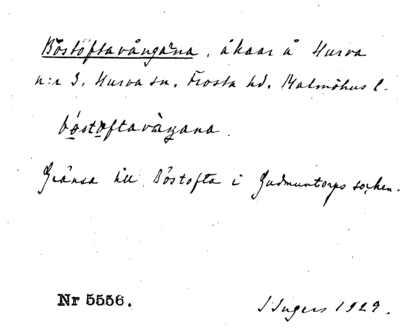 Böstöftavångarna, åkrar å Hurva
n:r 3. Hurva sn. Frosta hd. Malmöhus l.
bö́stoftavàŋana.
Gränsa till Böstofta i Gudmuntorps socken.
Nr 5556. I Ingers 1929.